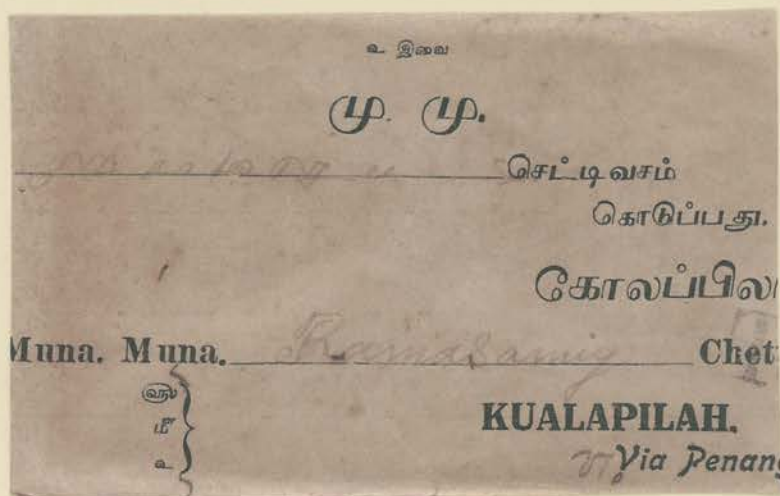 உ இவை
மு. மு.
செட்டிவசம்
கொடுப்பது.
கோலப்பிலா
Muna. Muna. Ramasamy Chett
ஸ்ரீ
மீ
உ
KUALAPILAH.
Via Penang